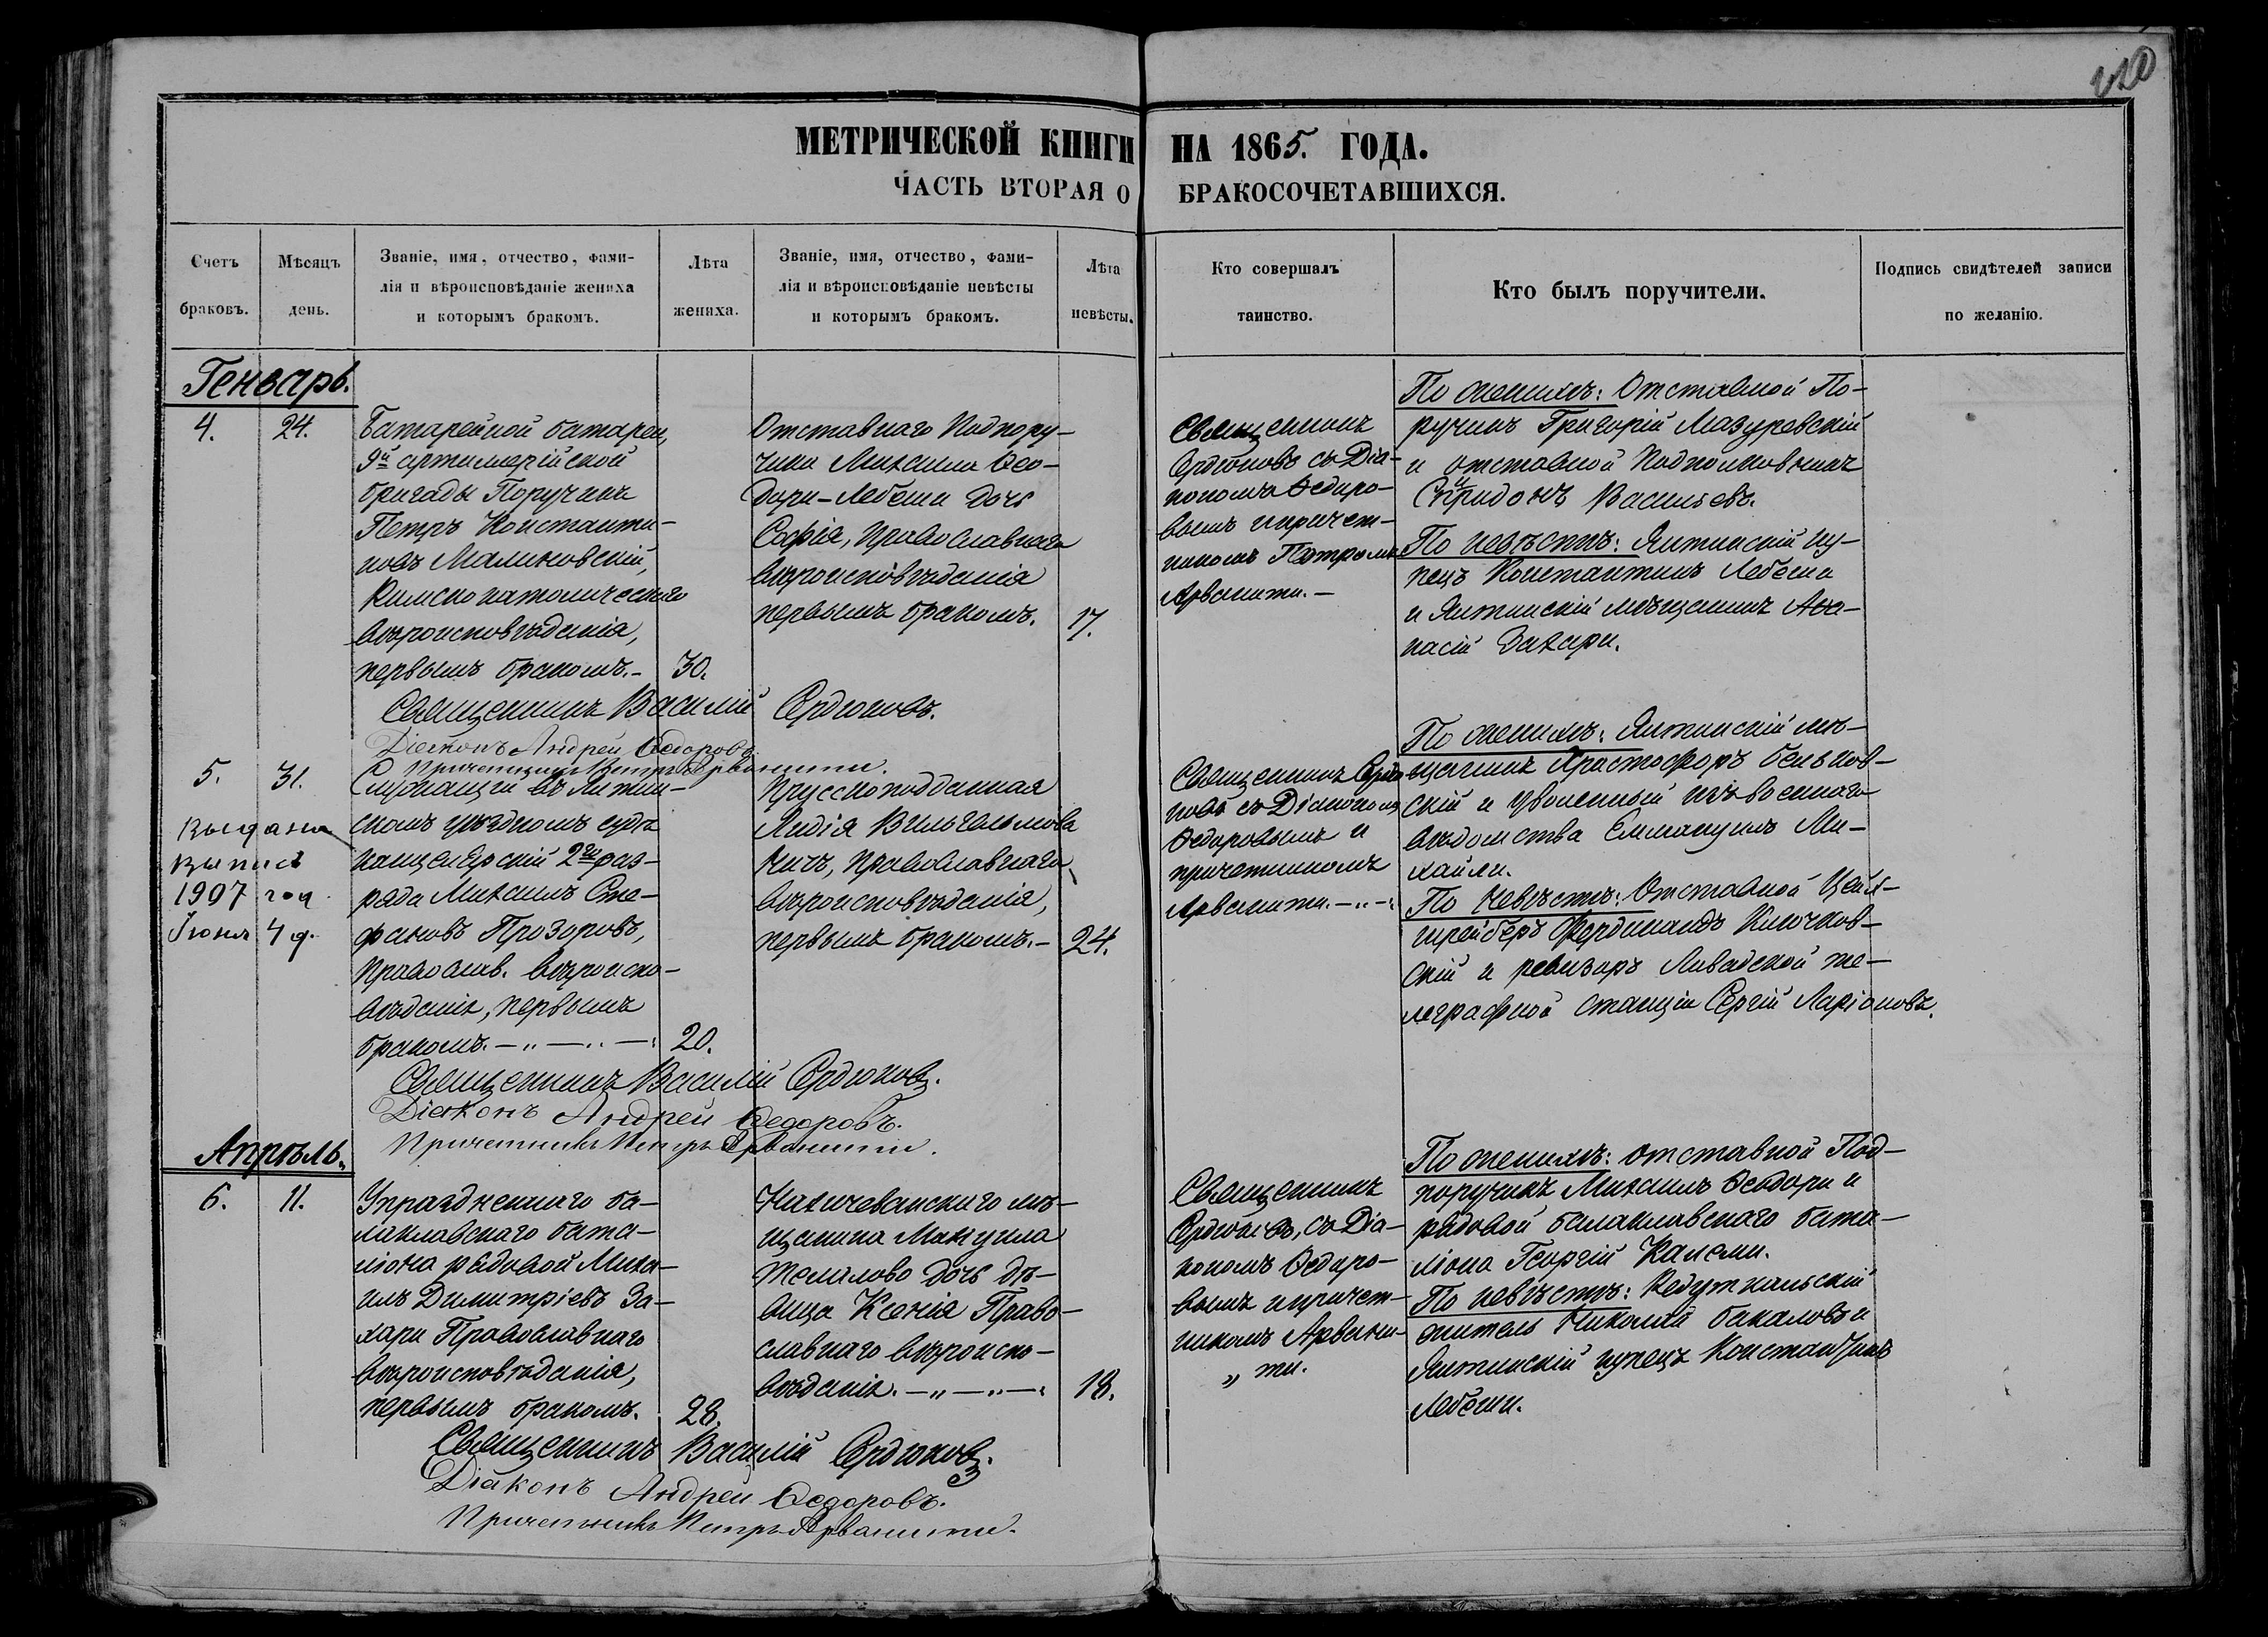 МЕТРИЧЕСКОЙ КНИГИ НА 1865. ГОДА.
ЧАСТЬ ВТОРАЯ О БРАКОСОЧЕТАВШИХСЯ.
Счетъ
браковъ.
Мѣсяцъ
день.
Званіе, имя, отчество, фами-
лія и вѣроисповѣданіе жениха
и которымъ бракомъ.
Лѣта
жениха.
Званіе, имя, отчество, фами-
лія и вѣроисповѣданіе невѣсты
и которымъ бракомъ.
Лѣта
невѣсты.
Кто совершалъ
таинство.
Кто былъ поручители.
Подпись свидѣтелей записи
по желанію.
Генварь.
4.
24.
Батарейной батареи,
9й артилерійской
бригады Поручикъ
Петръ Константи-
новъ Малиновскій,
Римскокатолическаго
вѣроисповѣданія,
первымъ бракомъ.-
30.
Отставнаго Подпору-
чика Михаила Ѳео-
дори-Лебеши дочь
Софія, Православнаго
вѣроисповѣданія
первымъ бракомъ.
17.
Священникъ
Сердюковъ съ Діа-
кономъ Ѳедоро-
вымъ и причет-
никомъ Петромъ
Арванити.-
По женихѣ: Отставной По-
ручикъ Григорій Мазуревскій
и отставной Подполковникъ
Спиридонъ Васильевъ.
По невѣстѣ: Ялтинскій ку-
пецъ Константинъ Лебеши
и Ялтинскій мѣщанинъ Аѳа-
насій Захари.
Священникъ Василій Сердюковъ.
Діаконъ Андрей Ѳедоровъ.
Причетникъ Петръ Арванити.
5.
31.
Выдана
выпись
1907 год
Іюня 4 д.
Служащій въ Ялтин-
скомъ уѣздномъ судѣ
канцелярскій 2го раз-
ряда Михаилъ Сте-
фановъ Прозоровъ,
Православ. вѣроиспо-
вѣданія, первымъ
бракомъ.
20.
Прусскоподданная
Лидія Вильгельмова
Ничъ, Православнаго
вѣроисповѣданія,
первымъ бракомъ.-
24.
Священникъ Сердю-
ковъ съ Діакономъ
Ѳедоровымъ и
причетникомъ
Арванити.
По женихѣ: Ялтинскій мѣ-
щанинъ Христофоръ Бельков-
скій и уволенный изъ военнаго
вѣдомства Еммануилъ Ми-
хайли.
По невѣстѣ: Отставной Цейх-
шрейберъ Фердинандъ Клочков-
скій и ревизоръ Ливадской те-
леграфной станціи Сергій Ларіоновъ.
Священникъ Василій Сердюковъ.
Діаконъ Андрей Ѳедоровъ.
Причетникъ Петръ Арванити.
Апрѣль.
6.
11.
Упраздненнаго ба-
лаклавскаго бата-
ліона рядовой Миха-
илъ Димитріевъ За-
хари Православнаго
вѣроисповѣданія,
первымъ бракомъ.
28.
Нахичеванскаго мѣ-
щанина Мануила
дочь дѣ-
вица Ксенія Право-
славнаго вѣроиспо-
вѣданія.
18.
Священникъ
Сердюковъ, съ Діа-
кономъ Ѳедоро-
вымъ и причет-
никомъ Арвани-
„ ти.
По женихѣ: отставной Под-
поручикъ Михаилъ Ѳеодори и
рядовой балаклавскаго бата-
ліона Георгій Калеми.
По невѣстѣ: Редуткальскій
житель Николай Бакаловъ и
Ялтинскій купецъ Константинъ
Лебеши.
Священникъ Василій Сердюковъ.
Діаконъ Андрей Ѳедоровъ.
Причетникъ Петръ Арванити.